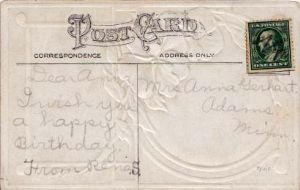 POST CARD
CORRESPONDENCE
ADDRESS ONLY
Dear Ann
I wish you
a happy
Birthday.
From Rene S
Mrs Anna Gerhart.
Adams
Minn.
ONE CENT